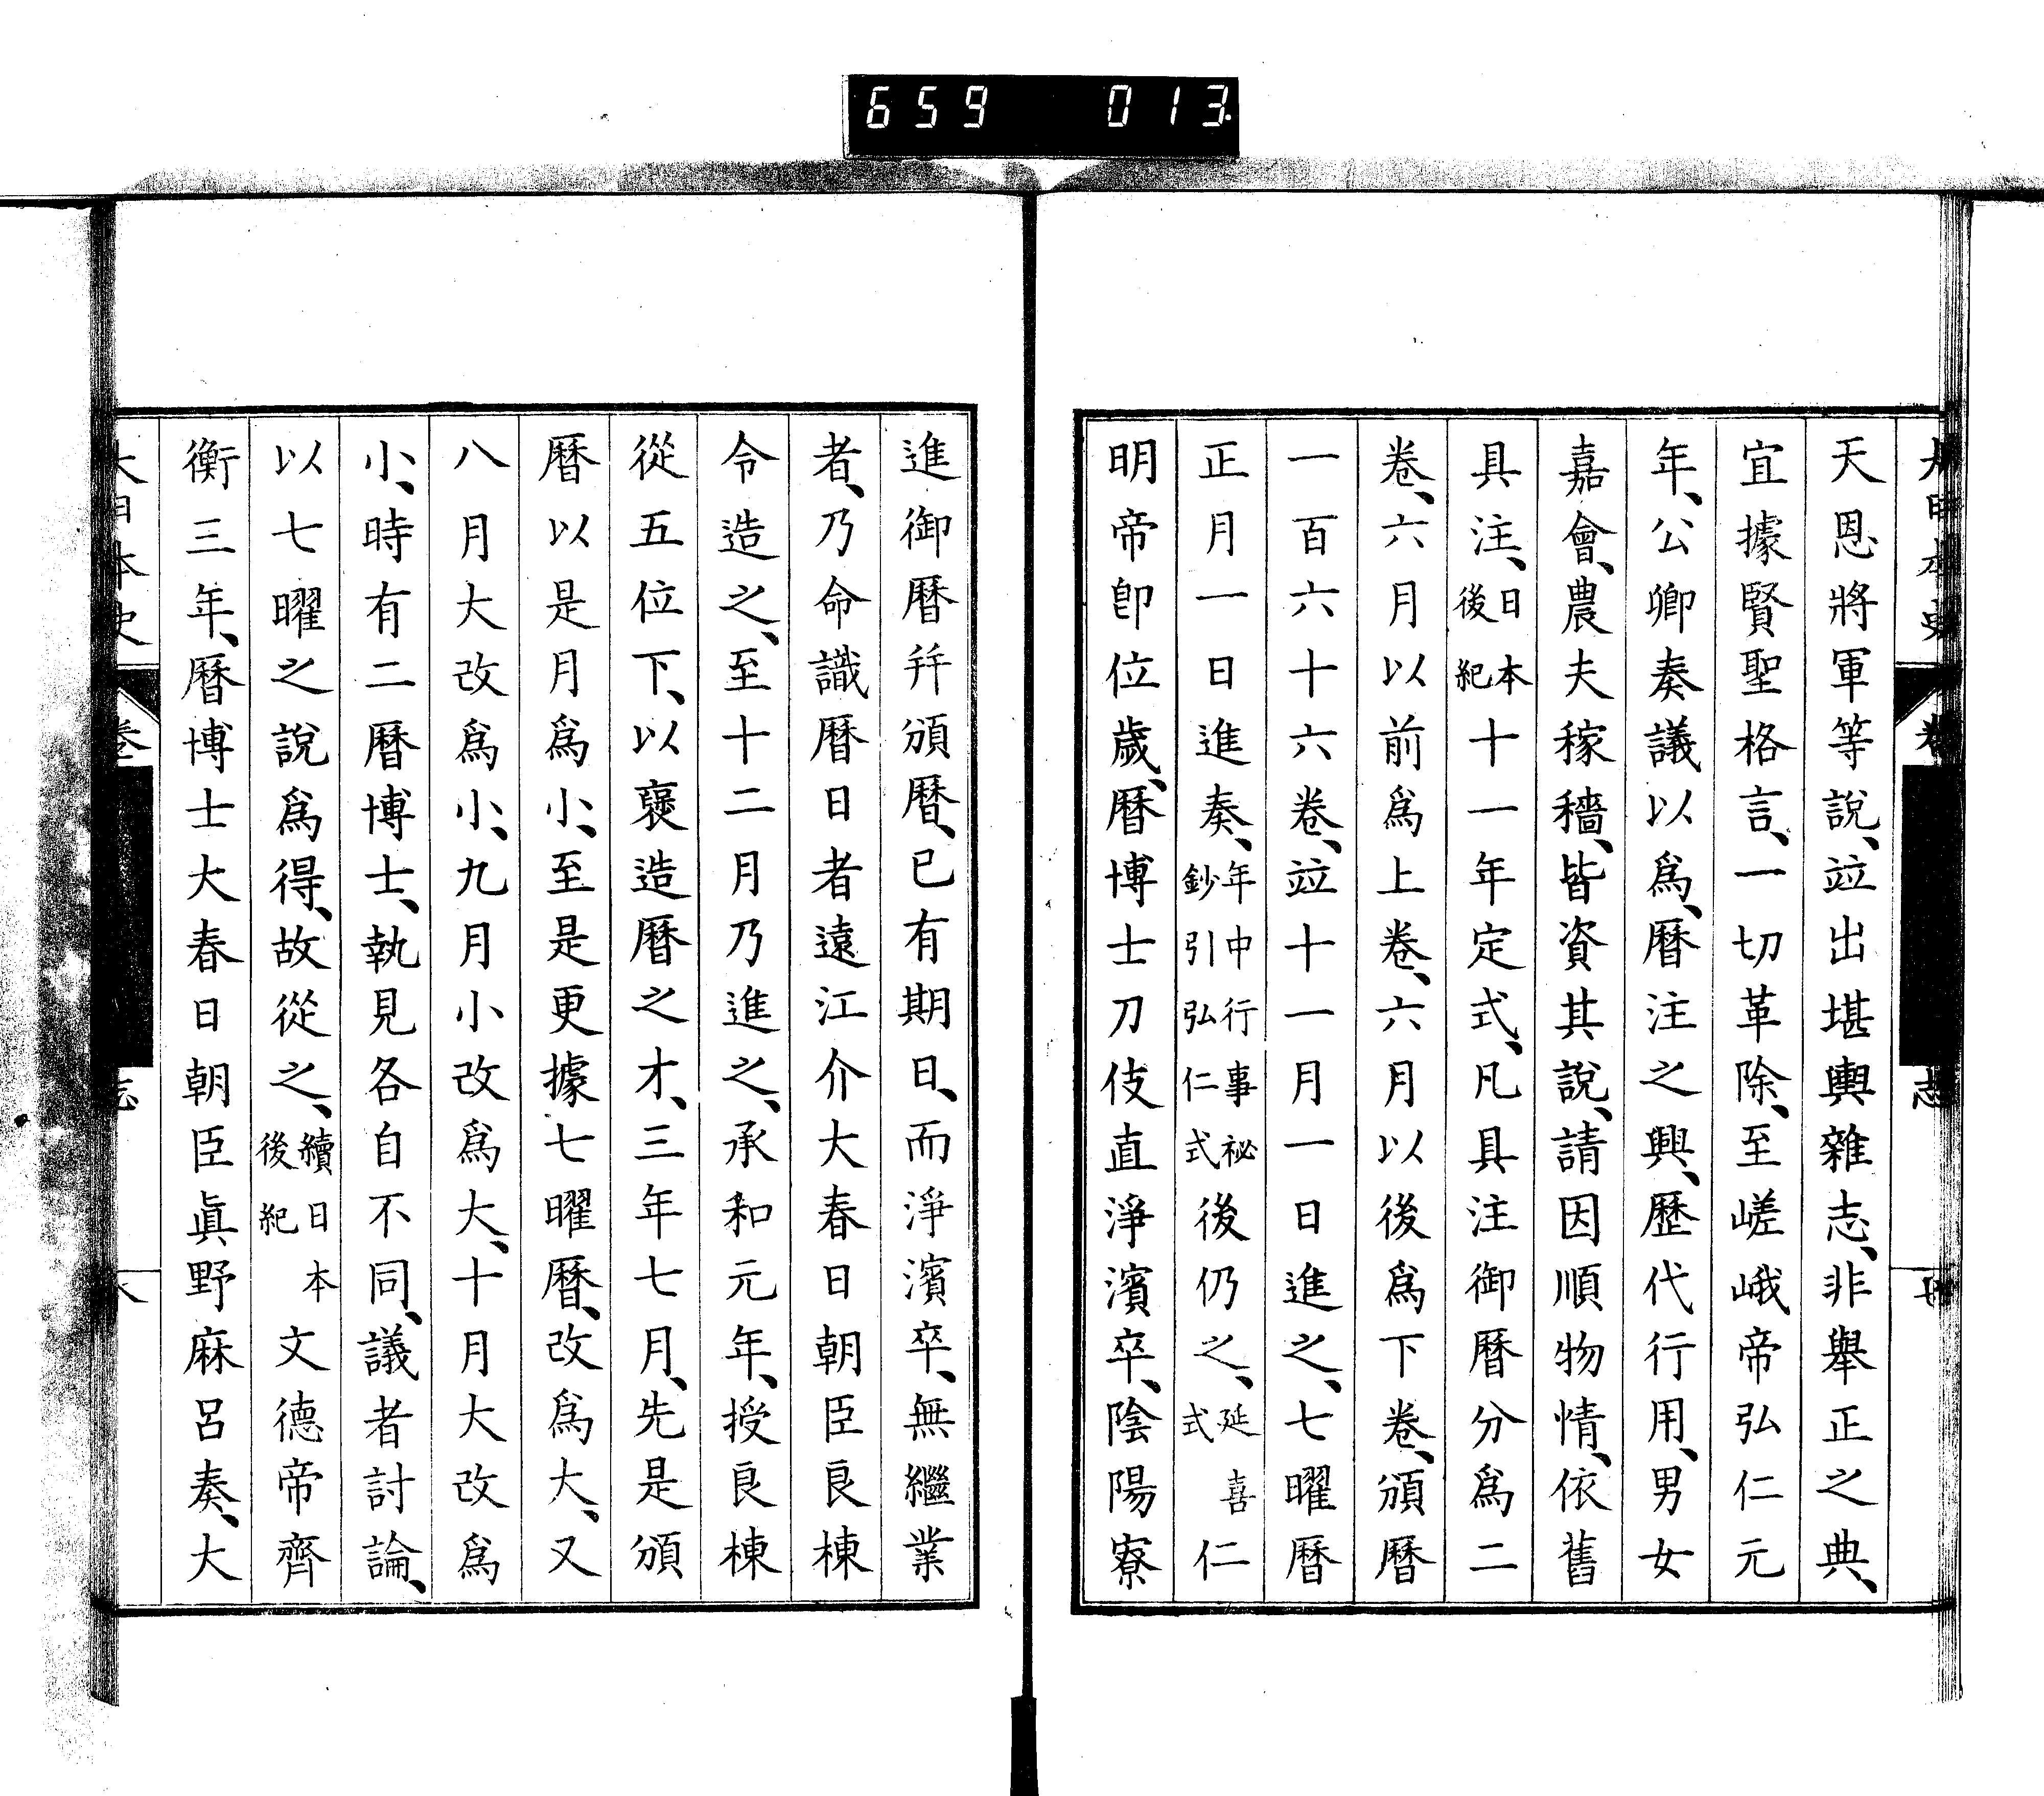 659 013
大日本史
卷
志
天恩將軍等說、竝出堪輿雜志、非擧正之典、
宜據賢聖格言、一切革除、至嵯峨帝弘仁元
年、公卿奏議以爲、曆注之興、歷代行用、男女
嘉會、農夫稼穡、皆資其說、請因順物情、依舊
具注、日本後紀十一年定式、凡具注御曆分爲二
卷、六月以前爲上卷、六月以後爲下卷、頒曆
一百六十六卷、竝十一月一日進之、七曜曆
正月一日進奏、年中行事祕鈔引弘仁式後仍之、延喜式仁
明帝卽位歲、曆博士刀伎直淨濱卒、陰陽寮
進御曆幷頒曆、已有期日、而淨濱卒、無繼業
者、乃命識曆日者遠江介大春日朝臣良棟
令造之、至十二月乃進之、承和元年、授良棟
從五位下、以襃造曆之才、三年七月、先是頒
曆以是月爲小、至是更據七曜曆、改爲大、又
八月大改爲小、九月小改爲大、十月大改爲
小、時有二曆博士、執見各自不同、議者討論、
以七曜之說爲得、故從之、續日本後紀文德帝齊
衡三年、曆博士大春日朝臣眞野麻呂奏、大
大日本史
卷
志